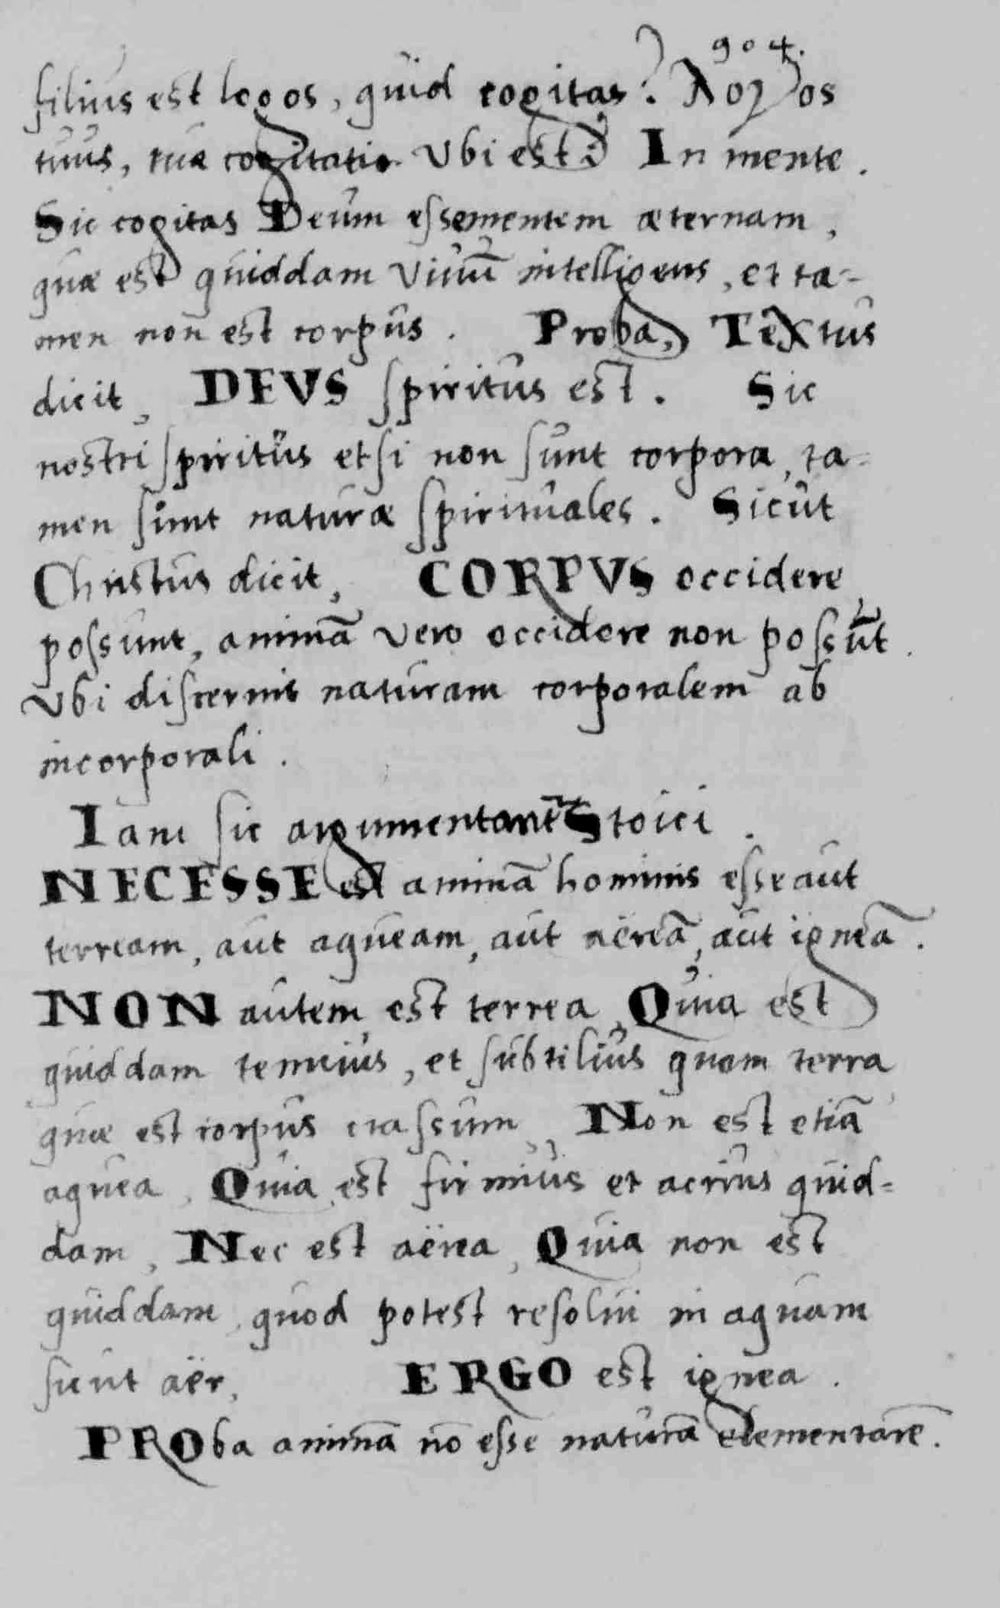 904.
filius est logos, quid cogitas? λογος
tuus, tua cogitatio. Vbi est? In mente.
Sic cogitas Deum esse mentem æternam,
quæ est quiddam viuū intelligens, et ta=
men non est corpus. Proba, Textus
dicit, DEVS spiritus est. Sic
nostri spiritus etsi non sunt corpora, ta=
men sunt naturæ spirituales. Sicut
Christus dicit, CORPVS occidere
possunt, animā vero occidere non possūt.
Vbi discernit naturam corporalem ab
incorporali.
Iam sic argumentantʳ Stoici.
NECESSE est animā hominis esse aut
terream, aut aqueam, aut aëreā, aut igneā.
NON autem est terrea, Quia est
quiddam tenuius, et subtilius quam terra
quæ est corpus crassum, Non est etiā
aquea, Quia est firmius et acrius quid=
dam, Nec est aërea, Quia non est
quiddam, quod potest resolui in aquam
sicut aër, ERGO est ignea.
PROba animā nō esse naturā elementarē.